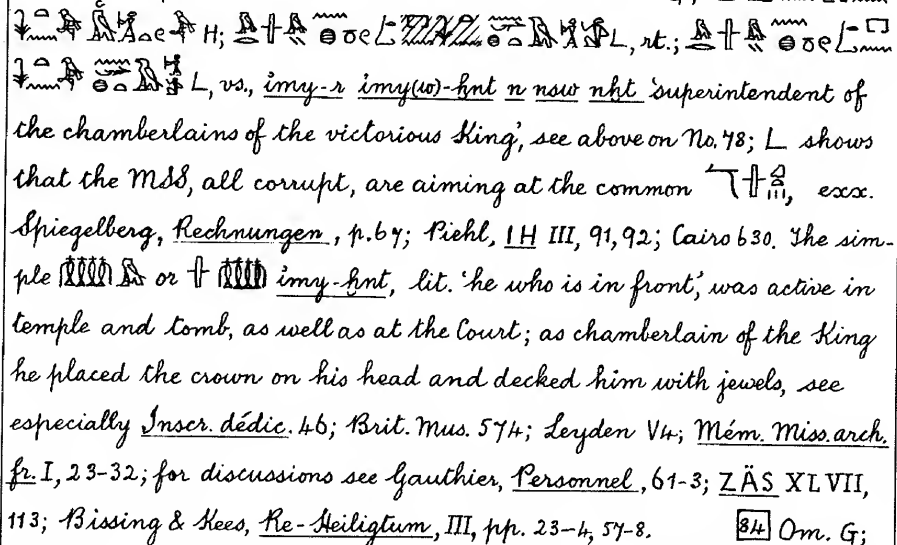 H; L, rt.;
L, vs., i̓my-r i̓my(w)-ḫnt n nsw nḫt 'superintendent of
the chamberlains of the victorious King', see above on No. 78; L shows
that the MSS, all corrupt, are aiming at the common , exx.
Spiegelberg, Rechnungen, p. 67; Piehl, IH III, 91, 92; Cairo 630. The sim-
ple or i̓my-ḫnt, lit. 'he who is in front', was active in
temple and tomb, as well as at the Court; as chamberlain of the King
he placed the crown on his head and decked him with jewels, see
especially Inscr. dédic. 46; Brit. Mus. 574; Leyden V4; Mém. Miss. arch.
fr. I, 23-32; for discussions see Gauthier, Personnel, 61-3; ZÄS XLVII,
113; Bissing & Kees, Re-Heiligtum, III, pp. 23-4, 57-8. 84 Om. G;